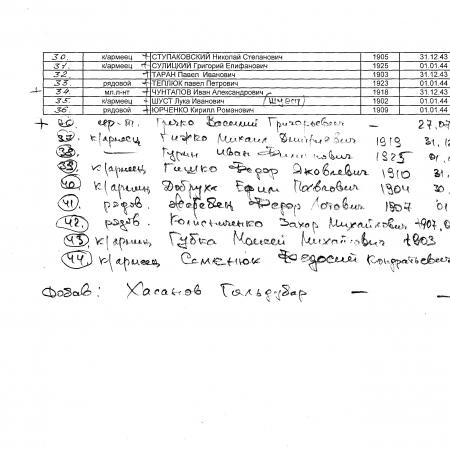 30. к/армеец + СТУПАКОВСКИЙ Николай Степанович 1905 31.12.43
31. к/армеец + СУЛИЦКИЙ Григорий Епифанович 1925 01.01.44
32. к/армеец + ТАРАН Павел Иванович 1903 31.12.43
33. рядовой + ТЕПЛЮК павел Петрович 1923 01.01.44
+ 34. мл.л-нт + ЧУНТАПОВ Иван Александрович 1918 31.12.43
35. к/армеец + ШУСТ Лука Иванович 1902 01.01.44
36. рядовой + ЮРЧЕНКО Кирилл Романович 1909 01.01.44
+ Василий Григорьевич – 27.07
к/армеец Михаил Дмитриевич 1919 31.
Иван 1925 01.
39. к/армеец Гишко Федор Яковлевич 1910 31.
40. к/армеец Ефим Павлович 1904 30.
41. рядов. Федор 1907 01
42. рядов. Захар Михайлович 1907
43. к/армеец Губка Моисей Михайлович 1903
44. к/армеец Семенюк Федосий Кондратьевич
Добав: Хасанов Гольдубар – –